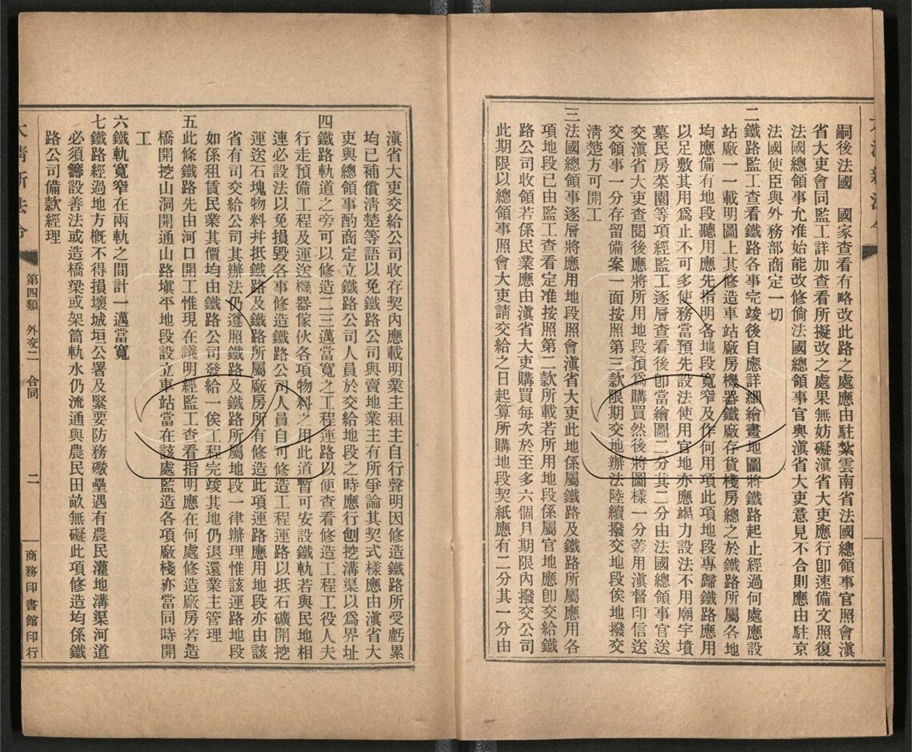 嗣後法國　國家查看有略改此路之處應由駐紮雲南省法國總領事官照會滇
省大吏會同監工詳加查看所擬改之處果無妨礙滇省大吏應行卽速備文照復
法國總領事允准始能改修倘法國總領事官與滇省大吏意見不合則應由駐京
法國使臣與外務部商定一切
二鐵路監工查看鐵路各事完竣後自應詳細繪畫地圖將鐵路起止經過何處應設
站廠一一載明圖上其修造車站廠房機器鐵廠存貨棧房總之於鐵路所屬各地
均應備有地段聽用應先指明各地段寬窄及作何用項此項地段專歸鐵路應用
以足敷其用爲止不可多使務當預先設法使用官地亦應竭力設法不用廟宇墳
墓民房菜園等項經監工逐層查看後卽當繪圖二分其二分由法國總領事官送
交滇省大吏查閱後應將所用地段預爲購買然後將圖樣一分蓋用滇督印信送
交領事一分存留備案一面按照第三款限期交地辦法陸續撥交地段俟地撥交
清楚方可開工
三法國總領事逐層將應用地段照會滇省大吏此地係屬鐵路及鐵路所屬應用各
項地段已由監工查看定准按照第二款所載若所用地段係屬官地應卽交給鐵
路公司收領若係民業應由滇省大吏購買每次於至多六個月期限內撥交公司
此期限以總領事照會大吏請交給之日起算所購地段契紙應有二分其一分由
滇省大吏交給公司收存契內應載明業主租主自行聲明因修造鐵路所受虧累
均已補償清楚等語以免鐵路公司與賣地業主有所爭論其契式樣應由滇省大
吏與總領事酌商定立鐵路公司人員於交給地段之時應行刨挖溝渠以爲界址
四鐵路軌道之旁可以修造二三邁當寬之工程運路以便查看修造工程工役人夫
行走預備工程及運送機器傢伙各項物料之用此道暫可安設鐵軌若與民地相
連必必設法以免損毀各事修造鐵路公司人員自可修造工程運路以抵石礦開挖
運送石塊物料幷抵鐵路及鐵路所屬廠房所有修造此項運路應用地段亦由該
省有司交給公司其辦法仍遵照鐵路及鐵路所屬地段一律辦理惟該運路地段
如係租賃民業其價均由鐵路公司發給一俟工程完竣其地仍退還業主管理
五此條鐵路先由河口開工惟現在議明經監工查看指明應在何處修造廠房若造
橋開挖山洞開通山路塡平地段設立車站當在該處監造各項廠棧亦當同時開
工
六鐵軌寬窄在兩軌之間計一邁當寬
七鐵路經過地方概不得損壞城垣公署及緊要防務礅壘遇有農民灌地溝渠河道
必須籌設善法或造橋梁或架筒軌水仍流通與農民田畝無礙此項修造均係鐵
路公司備款經理
大清新法令　第四類　外交二　合同　二　商務印書館印行